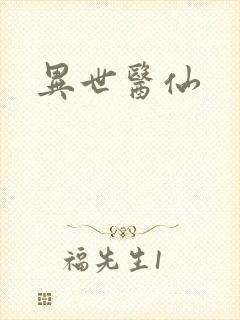 異世醫仙
福先生1